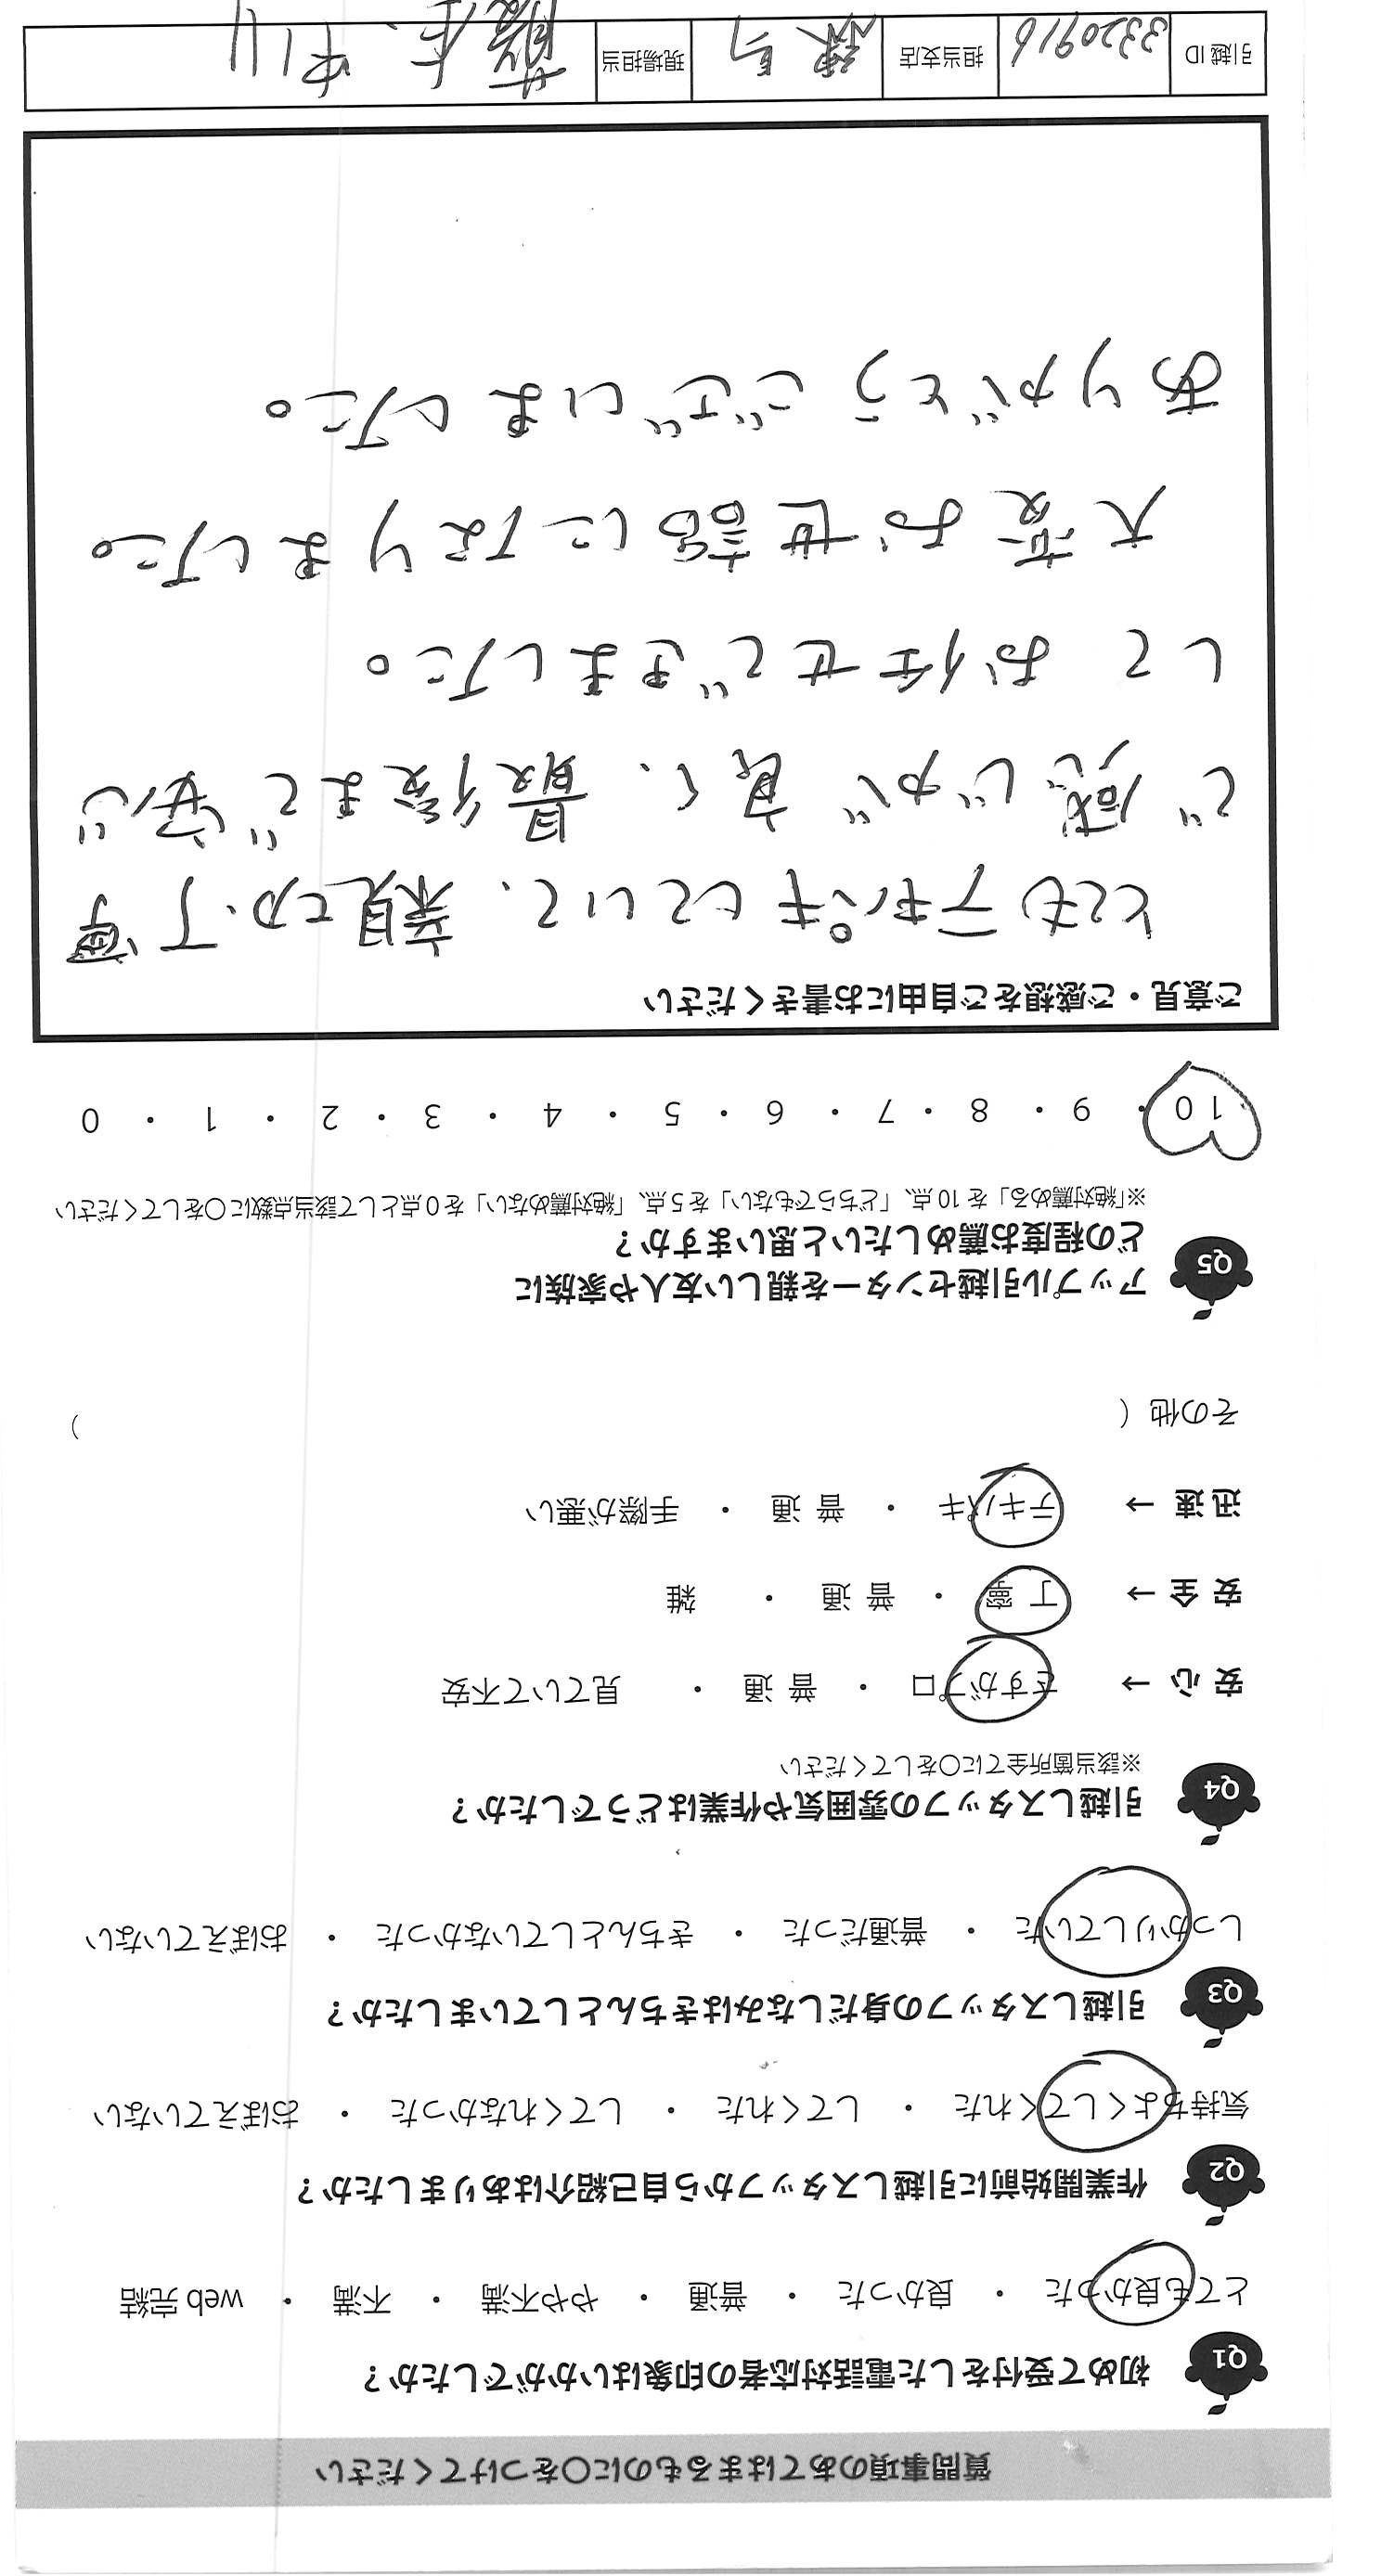 質問事項のあてはまるものに○をつけてください
Q1 初めて受付をした電話対応者の印象はいかがでしたか？
とても良かった ・ 良かった ・ 普通 ・ やや不満 ・ 不満 ・ web 完結
Q2 作業開始前に引越しスタッフから自己紹介はありましたか？
気持ちよくしてくれた ・ してくれた ・ してくれなかった ・ おぼえていない
Q3 引越しスタッフの身だしなみはきちんとしていましたか？
しっかりしていた ・ 普通だった ・ きちんとしていなかった ・ おぼえていない
Q4 引越しスタッフの雰囲気や作業はどうでしたか？
※該当箇所全てに○をしてください
安 心 → さすがプロ ・ 普 通 ・ 見ていて不安
安 全 → 丁 寧 ・ 普 通 ・ 雑
迅 速 → テキパキ ・ 普 通 ・ 手際が悪い
その他（ ）
Q5 アップル引越センターを親しい友人や家族に
どの程度お薦めしたいと思いますか？
※「絶対薦める」を 10 点、「どちらでもない」を 5 点、「絶対薦めない」を 0 点として該当点数に○をしてください
10 ・ 9 ・ 8 ・ 7 ・ 6 ・ 5 ・ 4 ・ 3 ・ 2 ・ 1 ・ 0
ご意見・ご感想をご自由にお書きください
とてもテキパキしていて、親切丁寧
で感じが良く、最後まで安心
して お任せできました。
大変お世話になりました。
ありがとうございました。
引越 ID 3320916 担当支店 練馬 現場担当